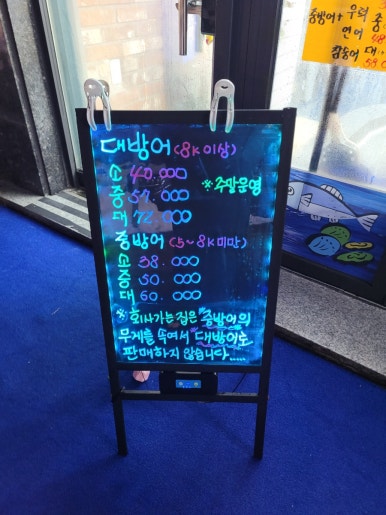 중방어+ 우럭 중
연어 48
참숭어 대...
58.0
대방어(8K이상)
소 40.000
중 57.000 ※주말운영
대 72.000
중방어(5~8K미만)
소 38.000
중 50.000
대 60.000
※ 회사가는집은 "중방어의
무게를 속여서 "대방어"로
판매하지 않습니다....